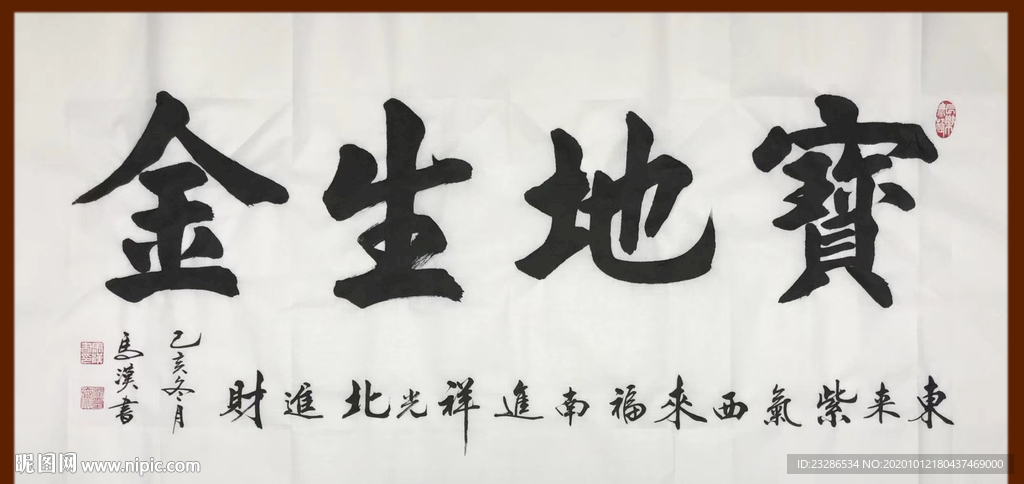 寶地生金
東来紫氣西來福南進祥光北進財
己亥冬月
馬漢書
昵图网 www.nipic.com
ID:23286534 NO:20201012180437469000